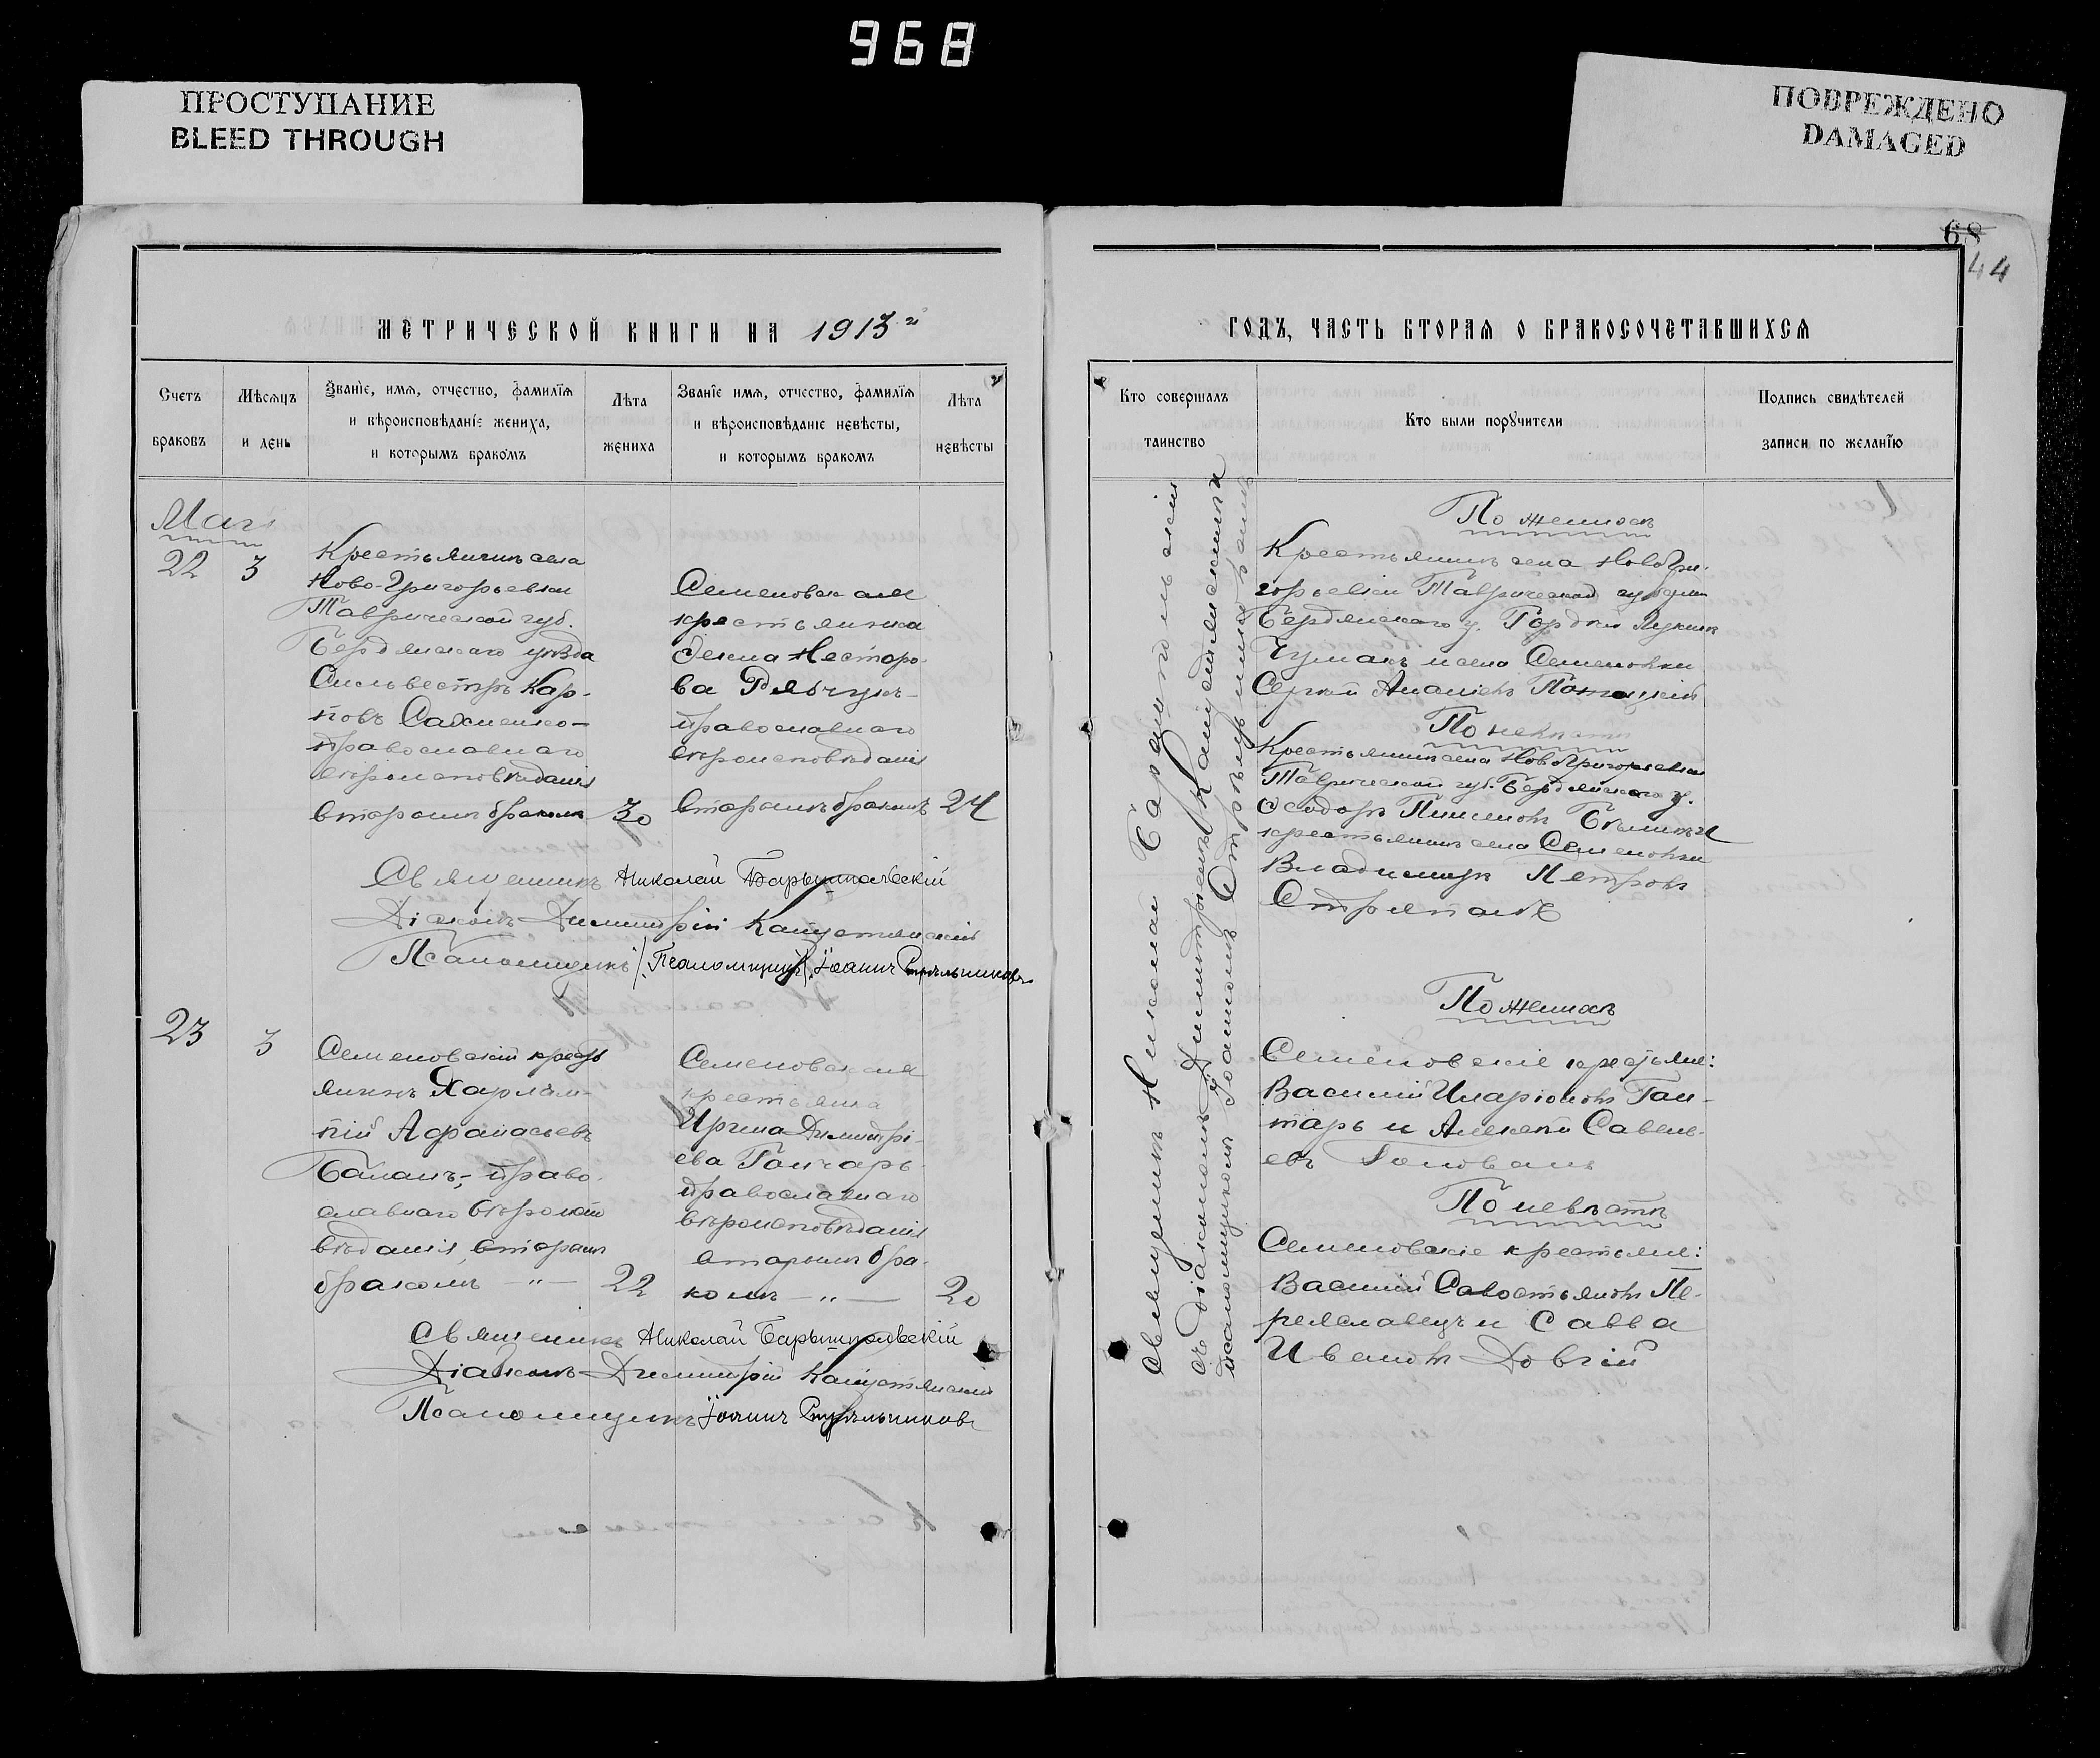 968
ПРОСТУПАНИЕ
BLEED THROUGH
ПОВРЕЖДЕНО
DAMAGED
68
44
МЕТРИЧЕСКОЙ КНИГИ НА 1913 й
Счетъ браковъ
Мѣсяцъ и день
Званіе, имя, отчество, фамилія
и вѣроисповѣданіе жениха,
и которымъ бракомъ
Лѣта жениха
Званіе имя, отчество, фамилія
и вѣроисповѣданіе невѣсты,
и которымъ бракомъ
Лѣта невѣсты
22
3
Крестьянинъ села
Ново-Григорьевки
Таврической губ.
Бердянскаго уѣзда
Сильвестръ Кар-
повъ
православнаго
вѣроисповѣданія
вторымъ бракомъ
30
Семеновская
крестьянка
Несторо-
ва Рябчукъ
православнаго
вѣроисповѣданія
вторымъ бракомъ
24
Священникъ Николай Барышпольскій
Діаконъ Димитрій Капустянскій
Псаломщикъ /Псаломщикъ/ Іоаннъ Стрѣльниковъ
23
3
Семеновскій крестья
янинъ Харлам-
пій Афанасьевъ
Баланъ, право-
славнаго вѣроиспо
вѣданія, вторымъ
бракомъ — " —
22
Семеновская
крестьянка
Ирина Димитрі-
ева Гончаръ
православнаго
вѣроисповѣданія
вторымъ бра-
комъ — " —
20
Священникъ Николай Барышпольскій
Діаконъ Димитрій Капустянскій
Псаломщикъ Іоаннъ Стрѣльниковъ
ГОДЪ, ЧАСТЬ ВТОРАЯ О БРАКОСОЧЕТАВШИХСЯ
Кто совершалъ таинство
Кто были поручители
Подпись свидѣтелей записи по желанію
Священникъ Николай Барышпольскій
съ діакономъ Димитріемъ Капустянскимъ
псаломщикомъ Іоанномъ Стрѣльниковымъ
По женихѣ
Крестьянинъ села Ново Гри-
горьевки Таврической губерніи
Бердянскаго у. Гордій Лукинъ
Чумакъ и села Семеновки
Сергій Ананіевъ
По невѣстѣ
Крестьянинъ села Ново Григорьевки
Таврической губ. Бердянскаго у.
Ѳеодоръ Пименовъ и
крестьянинъ села Семеновки
Владимиръ Петровъ
По женихѣ
Семеновскіе крестьяне:
Василій Иларіоновъ Гон-
таръ и Алексѣй Савель-
евъ Голованъ
По невѣстѣ
Семеновскіе крестьяне:
Василій Савостьяновъ Пе-
реяславецъ и Савва
Ивановъ Довгій